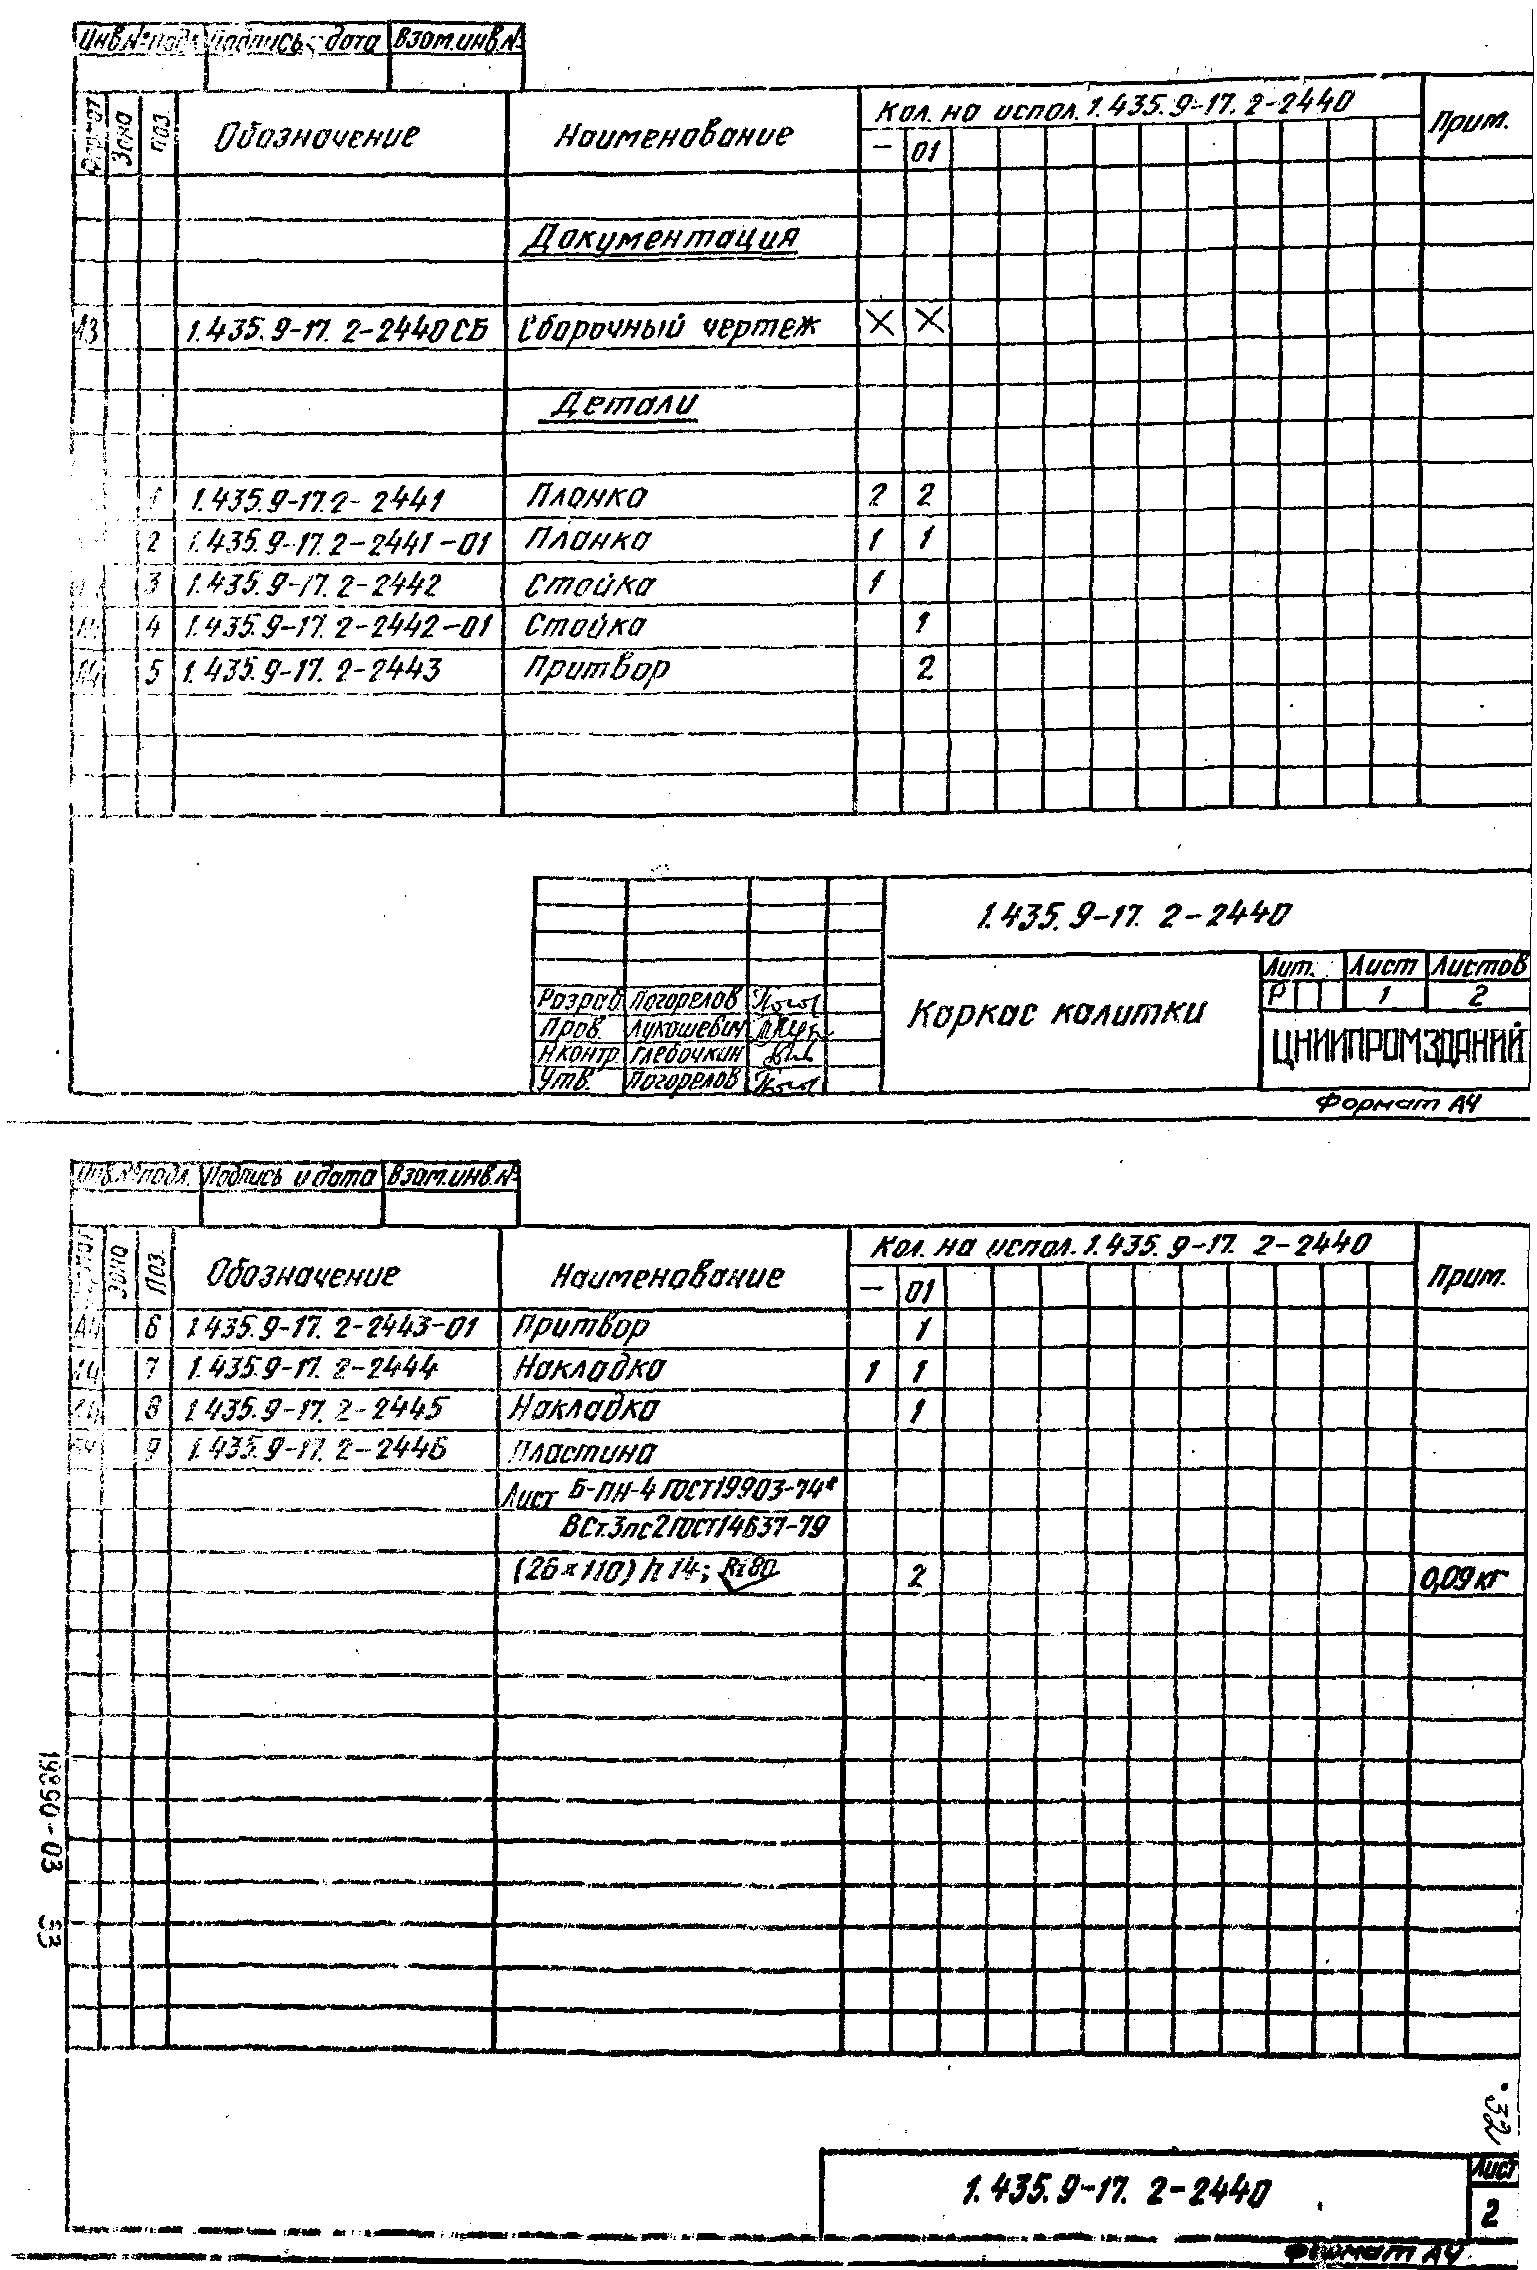 Инв.№ подл. Подпись и дата Взам.инв.№
Формат Зона Поз. Обозначение Наименование Кол. на испол. 1.435.9-17. 2-2440 Прим.
— 01
Документация
А3 1.435.9-17. 2-2440СБ Сборочный чертеж X X
Детали
1 1.435.9-17.2-2441 Планка 2 2
2 1.435.9-17.2-2441-01 Планка 1 1
3 1.435.9-17. 2-2442 Стойка 1
А4 4 1.435.9-17. 2-2442-01 Стойка 1
А4 5 1.435.9-17. 2-2443 Притвор 2
1.435.9-17. 2-2440
Каркас калитки
Лит. Лист Листов
Р 1 2
ЦНИИПРОМЗДАНИЙ
Разраб Погорелов
Пров. Лукашевич
Н.контр Глебочкин
Утв. Погорелов
Формат А4
Инв.№ подл. Подпись и дата Взам.инв.№
Формат Зона Поз. Обозначение Наименование Кол. на испол. 1.435.9-17. 2-2440 Прим.
— 01
А4 6 1.435.9-17. 2-2443-01 Притвор 1
А4 7 1.435.9-17. 2-2444 Накладка 1 1
А4 8 1.435.9-17. 2-2445 Накладка 1
БЧ 9 1.435.9-17. 2-2446 Пластина
Лист Б-ПН-4 ГОСТ19903-74*
ВСт.3пс2 ГОСТ14637-79
(26×110) h 14; Rz80 2 0,09 кг
19890-03 33
32
1.435.9-17. 2-2440
Лист
2
Формат А4